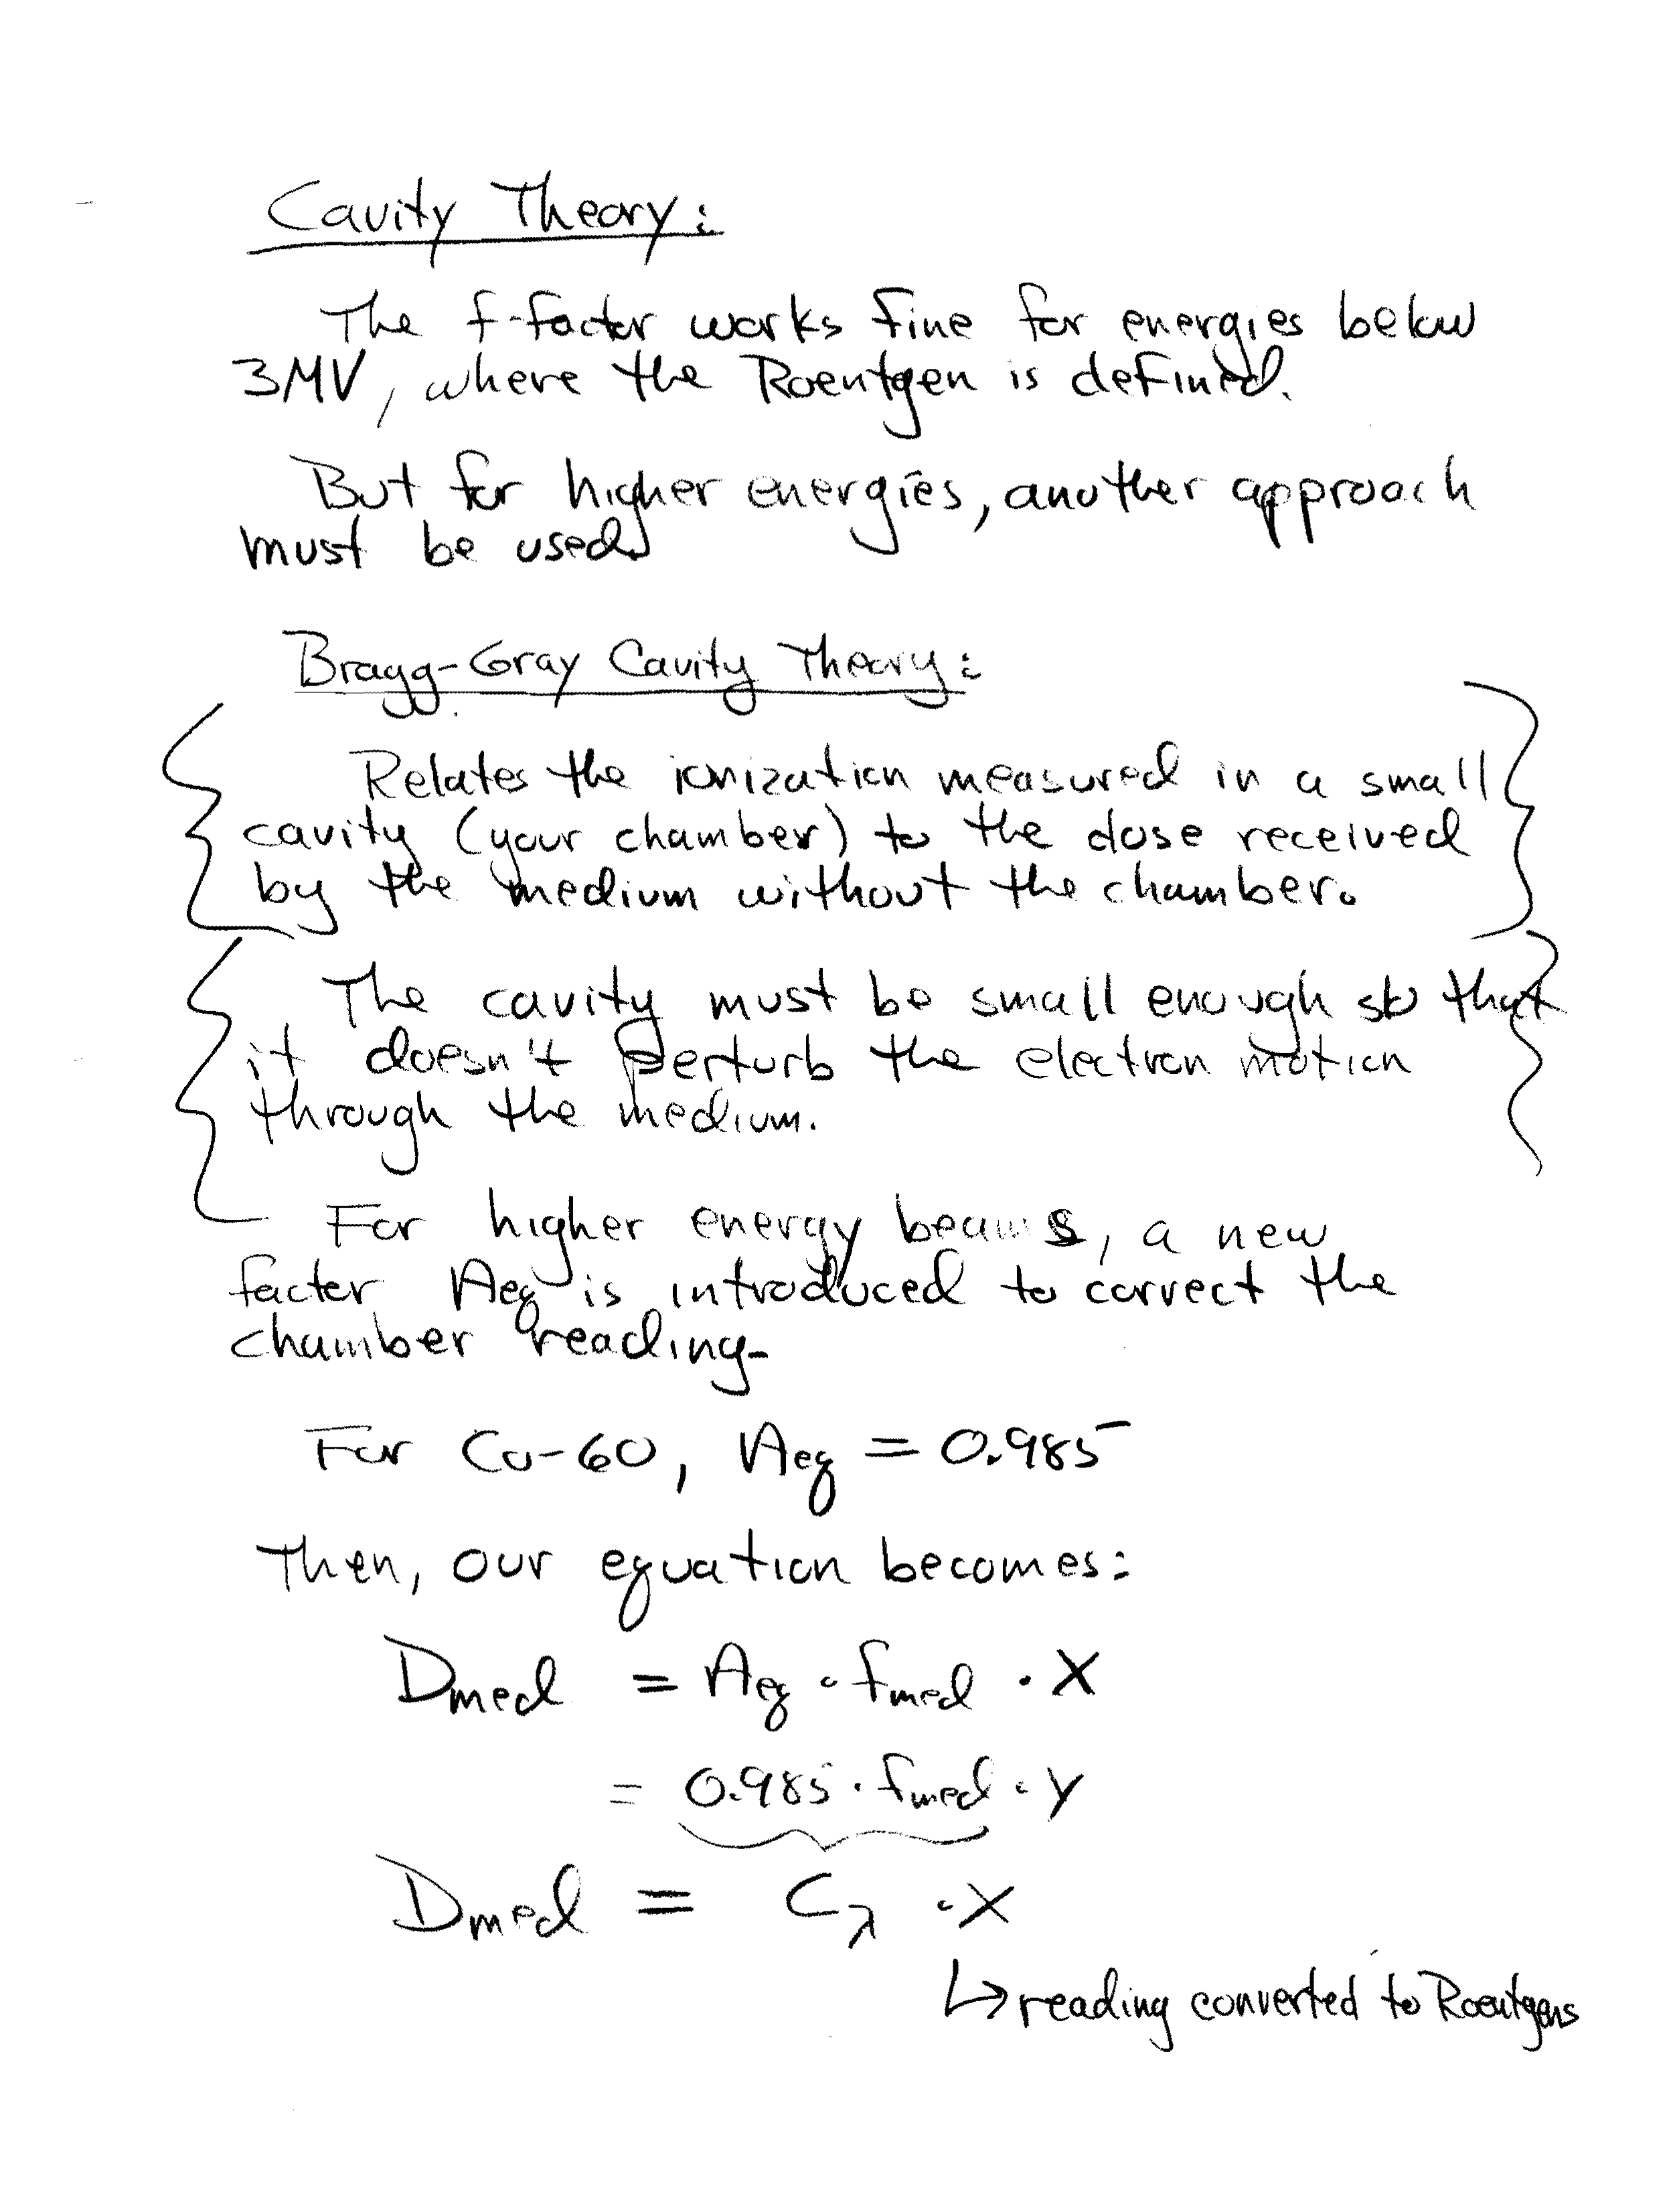 Cavity Theory:
The f-factor works fine for energies below
3MV, where the Roentgen is defined.
But for higher energies, another approach
must be used.
Bragg-Gray Cavity Theory:
Relates the ionization measured in a small
cavity (your chamber) to the dose received
by the medium without the chamber.
The cavity must be small enough so that
it doesn't perturb the electron motion
through the medium.
For higher energy beams, a new
factor Aeq is introduced to correct the
chamber reading.
For Co-60, Aeq = 0.985
Then, our equation becomes:
Dmed = Aeq · fmed · X
= 0.985 · fmed · y
Dmed = Cλ · X
↳ reading converted to Roentgens